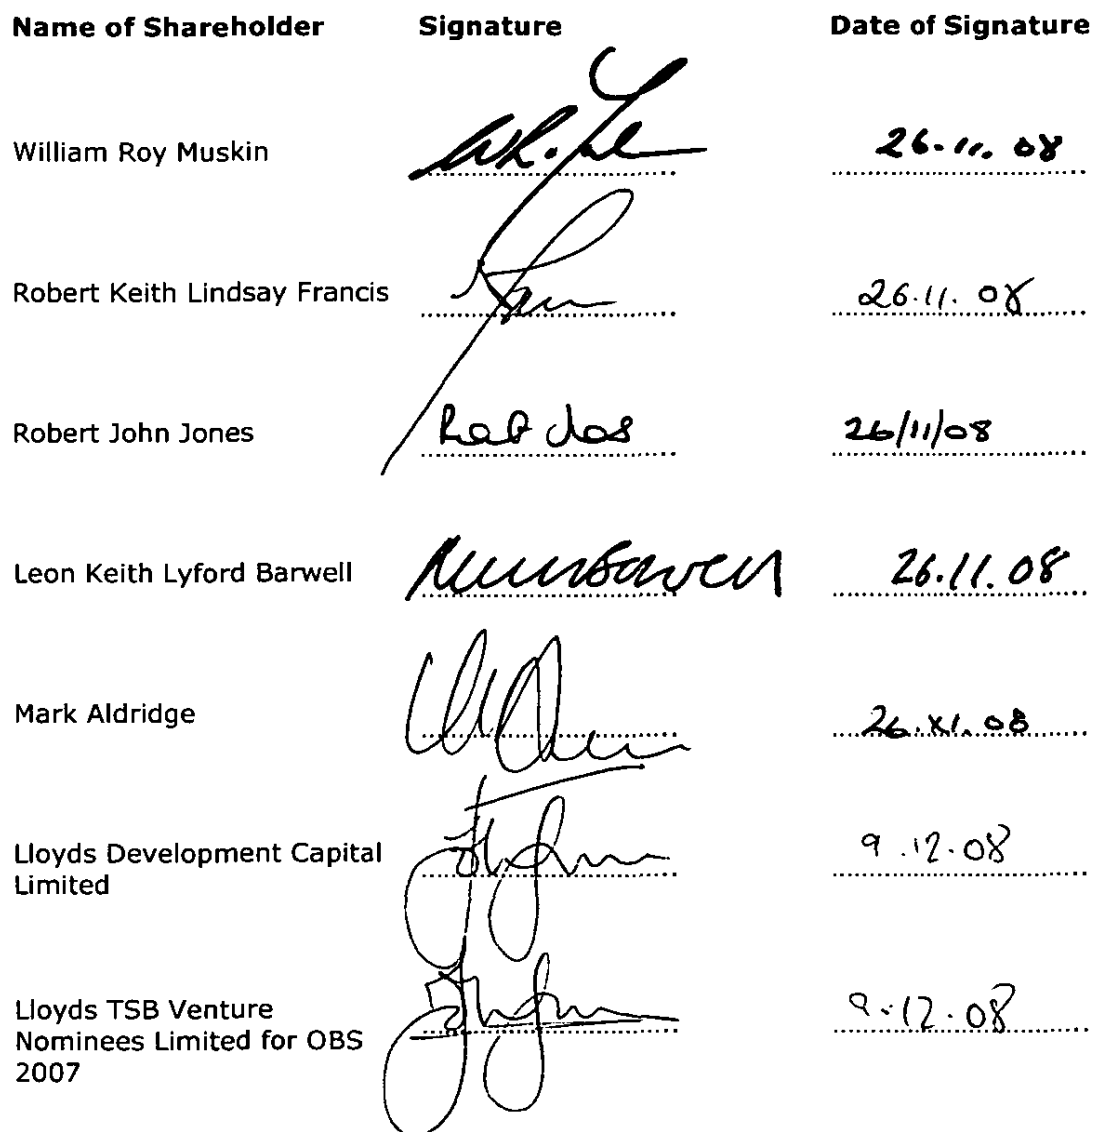 Name of Shareholder Signature Date of Signature
William Roy Muskin 26.11.08
Robert Keith Lindsay Francis 26.11.08
Robert John Jones 26/11/08
Leon Keith Lyford Barwell 26.11.08
Mark Aldridge 26.XI.08
Lloyds Development Capital 9.12.08
Limited
Lloyds TSB Venture 9.12.08
Nominees Limited for OBS
2007